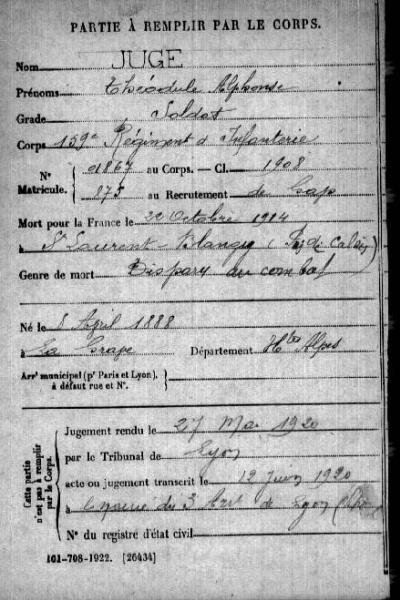 PARTIE À REMPLIR PAR LE CORPS.
Nom JUGE
Prénoms Théodule Alphonse
Grade Soldat
Corps 159e Régiment d'Infanterie
N° Matricule. { 01867 au Corps. — Cl. 1908
875 au Recrutement de Gap
Mort pour la France le 22 Octobre 1914
à St Laurent-Blangy (Pas de Calais)
Genre de mort Disparu au combat
Né le 8 April 1888
à La Département Htes Alpes
Arrt municipal (pr Paris et Lyon), à défaut rue et N°. {
Cette partie n'est pas à remplir par le Corps.
Jugement rendu le 27 Mai 1920
par le Tribunal de Lyon
acte ou jugement transcrit le 12 Juin 1920
à mairie du 3 Arrt de Lyon
N° du registre d'état civil
101-708-1922. [26434]